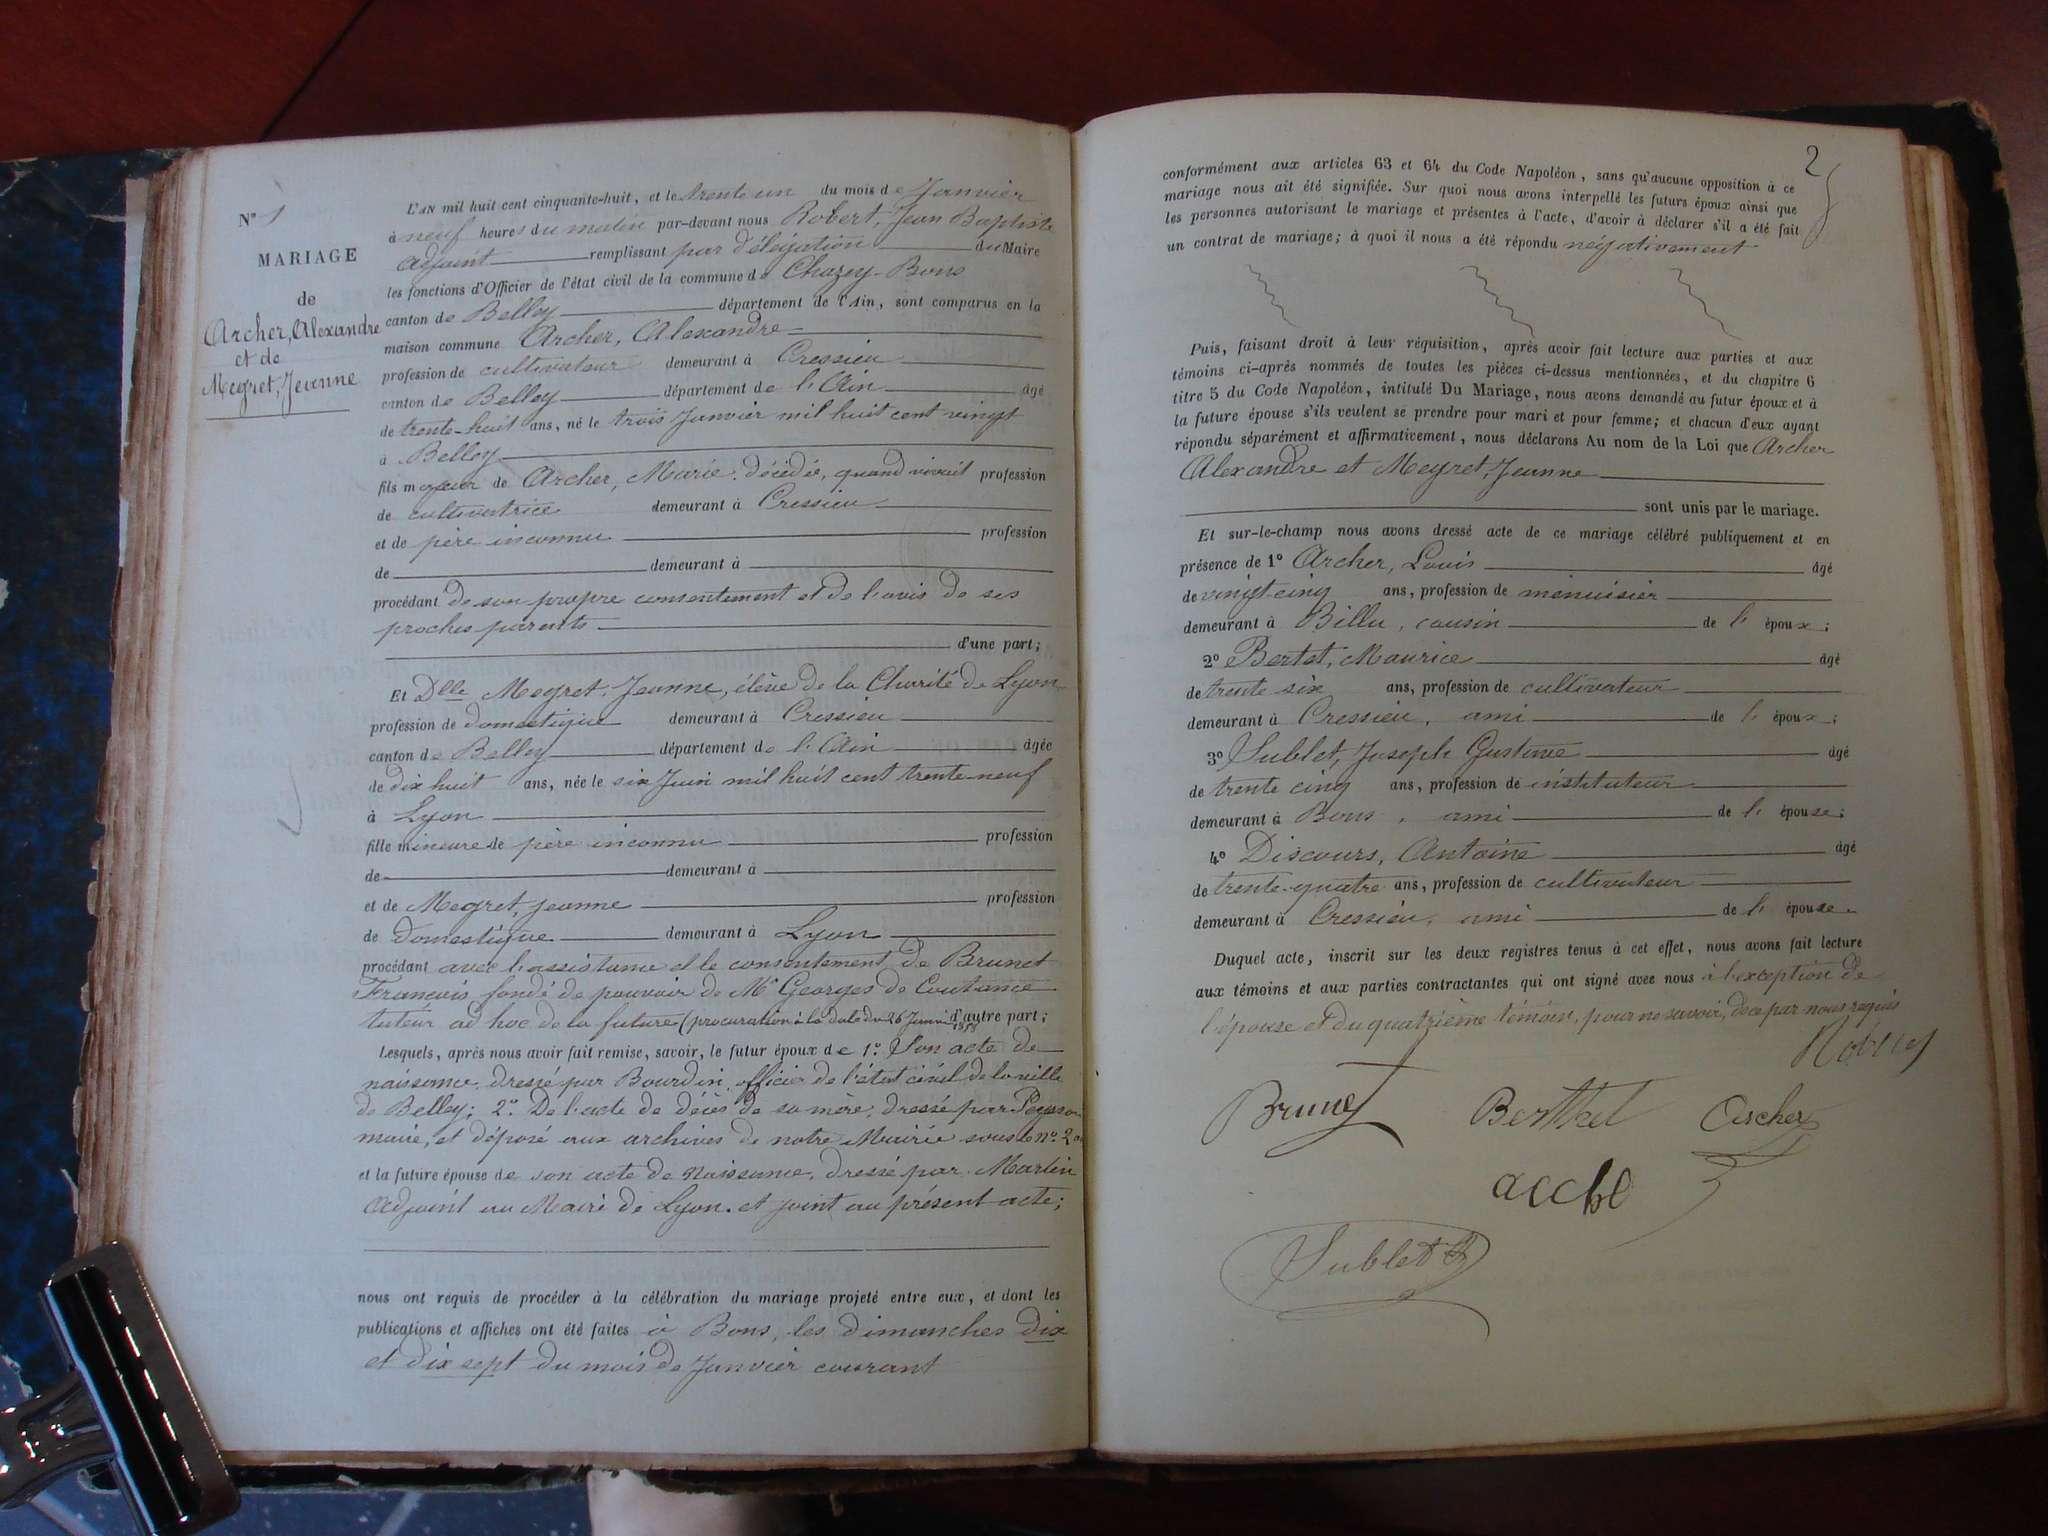 N° 1
MARIAGE
de
Archer, Alexandre
et de
Megret, Jeanne
L'AN mil huit cent cinquante-huit, et le trente un du mois de Janvier
à neuf heures du matin par-devant nous Robert, Jean Baptiste
adjoint remplissant par délégation du Maire
les fonctions d'Officier de l'état civil de la commune de Chazey-Bons
canton de Belley département de l'Ain, sont comparus en la
maison commune Archer, Alexandre
profession de cultivateur demeurant à Cressieu
canton de Belley département de l'Ain âgé
de trente-huit ans, né le trois Janvier mil huit cent vingt
à Belley
fils majeur de Archer, Marie, décédée, quand vivait profession
de cultivatrice demeurant à Cressieu
et de père inconnu profession
de demeurant à
procédant de son propre consentement et de l'avis de ses
proches parents
d'une part;
Et Dlle Megret, Jeanne, élève de la Charité de Lyon
profession de domestique demeurant à Cressieu
canton de Belley département de l'Ain âgée
de dix huit ans, née le six Juin mil huit cent trente-neuf
à Lyon
fille mineure de père inconnu profession
de demeurant à
et de Megret, Jeanne profession
de domestique demeurant à Lyon
procédant avec l'assistance et le consentement de Brunet
François, fondé de pouvoir de Mr Georges de Coutance
tuteur ad hoc de la future (procuration à la date du 26 Janvier 1858 d'autre part;
Lesquels, après nous avoir fait remise, savoir, le futur époux de 1°. Son acte de
naissance, dressé par Bourdin, officier de l'état civil de la ville
de Belley; 2°. De l'acte de décès de sa mère, dressé par
maire, et déposé aux archives de notre Mairie sous le n°.
et la future épouse de son acte de Naissance, dressé par Martin
adjoint au Maire de Lyon. et joint au présent acte;
nous ont requis de procéder à la célébration du mariage projeté entre eux, et dont les
publications et affiches ont été faites à Bons, les dimanches dix
et dix sept du mois de Janvier courant
2
conformément aux articles 63 et 64 du Code Napoléon, sans qu'aucune opposition à ce
mariage nous ait été signifiée. Sur quoi nous avons interpellé les futurs époux ainsi que
les personnes autorisant le mariage et présentes à l'acte, d'avoir à déclarer s'il a été fait
un contrat de mariage; à quoi il nous a été répondu négativement
Puis, faisant droit à leur réquisition, après avoir fait lecture aux parties et aux
témoins ci-après nommés de toutes les pièces ci-dessus mentionnées, et du chapitre 6
titre 5 du Code Napoléon, intitulé Du Mariage, nous avons demandé au futur époux et à
la future épouse s'ils veulent se prendre pour mari et pour femme; et chacun d'eux ayant
répondu séparément et affirmativement, nous déclarons Au nom de la Loi que Archer
Alexandre et Megret, Jeanne
sont unis par le mariage.
Et sur-le-champ nous avons dressé acte de ce mariage célébré publiquement et en
présence de 1° Archer, Louis âgé
de vingt-cinq ans, profession de menuisier
demeurant à Billu, cousin de l'époux;
2° Bertet, Maurice âgé
de trente six ans, profession de cultivateur
demeurant à Cressieu, ami de l'époux;
3° Sublet, Joseph Gustave âgé
de trente cinq ans, profession de instituteur
demeurant à Bons, ami de l'épouse;
4° Discours, Antoine âgé
de trente-quatre ans, profession de cultivateur
demeurant à Cressieu, ami de l'épouse.
Duquel acte, inscrit sur les deux registres tenus à cet effet, nous avons fait lecture
aux témoins et aux parties contractantes qui ont signé avec nous à l'exception de
l'épouse et du quatrième témoin, pour ne savoir, de ce par nous requis
Robert
Brunet Berthet Archer
Sublet